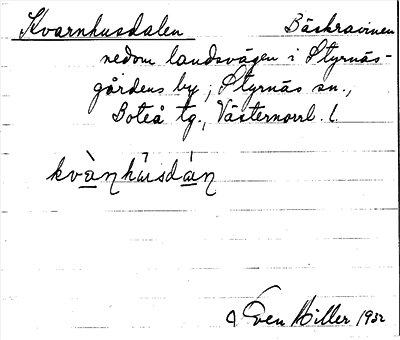 Kvarnhusdalen Bäckravinen
nedom landsvägen i Styrnäs-
gårdens by, Styrnäs sn.,
Boteå tg., Västernorrl. l.
kvànhùsdáŋ
Sven Hiller 1932